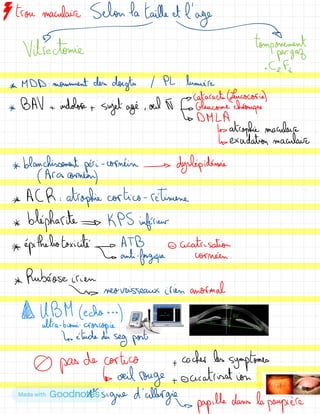 trou maculaire Selon la taille et l'age
Vitrectomie
tamponnement
par gaz
C2F6
* MDD mouvement des doigts / PL lumière
* BAV + indolore + sujet agé, œil N
cataracte (leucocorie)
Glaucome chronique
DMLA
atrophie maculaire
exsudation maculaire
* blanchissement péri-cornéen → dyslipidémie
(Arc cornéen)
* ACR : atrophie cortico-rétinienne
* blépharite ⇒ KPS inférieur
* épithéliotoxicité → ATB
anti-fongique
⊖ cicatrisation
cornéen
* Rubéose irien
néovaisseaux irien anormal
UBM (echo ...)
ultra-biomicroscopie
étude du seg
∅ pas de cortico
+ cacher les symptomes
œil rouge + ⊖ cicatrisation
signe d'allergie
papille dans la paupière
Made with Goodnotes